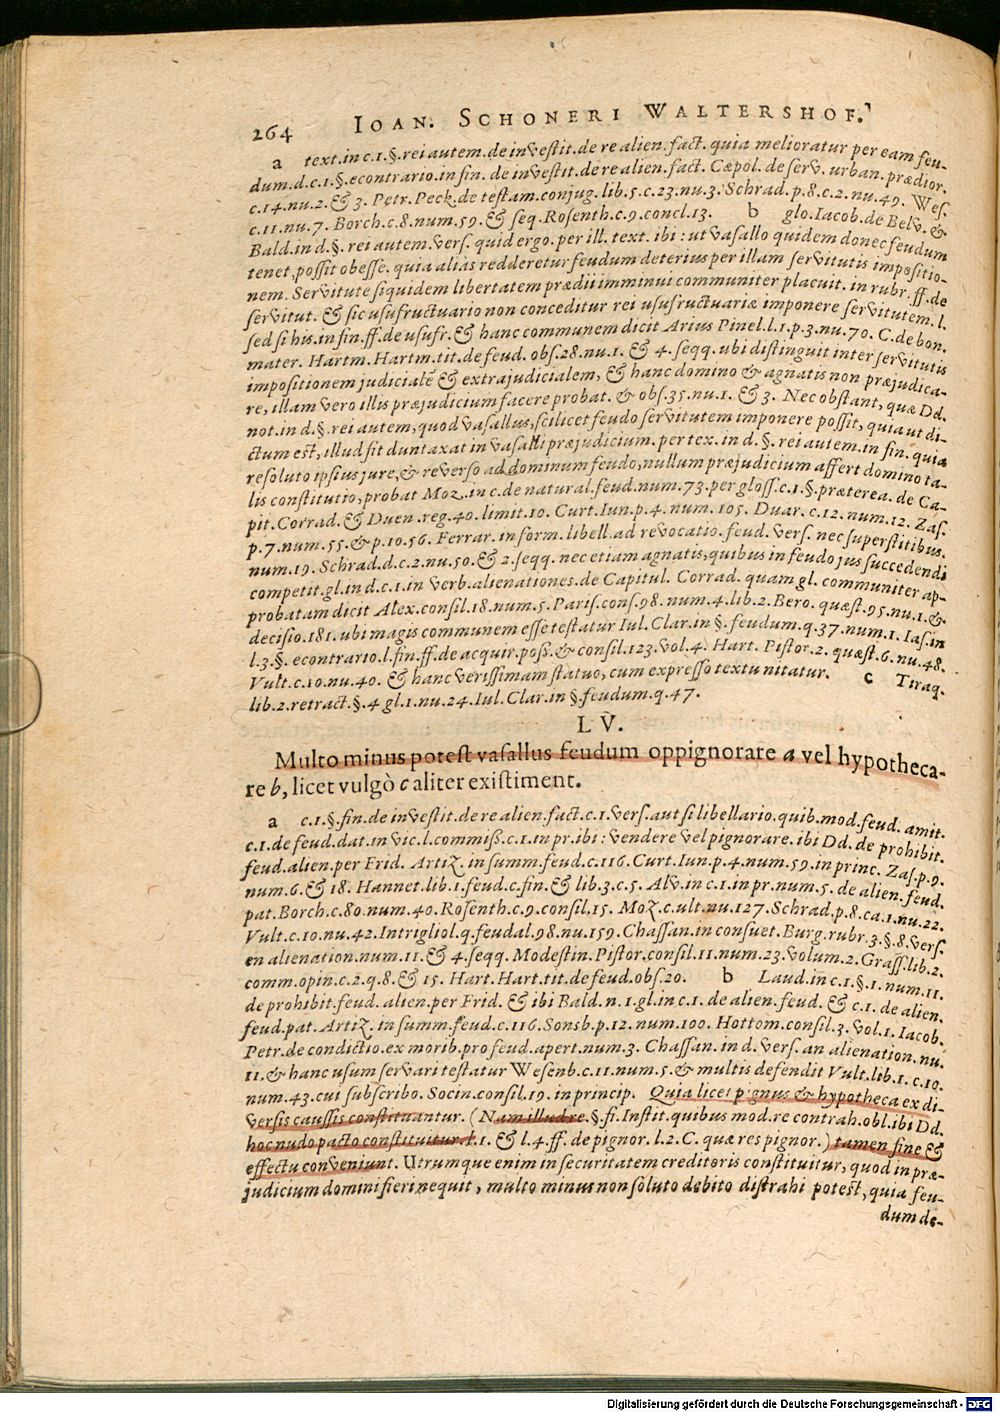 264 IOAN. SCHONERI WALTERSHOF.
a text. in c. 1. §. rei autem. de investit. de re alien. fact. quia melioratur per eam feu-
dum. d. c. 1. §. econtrario. in fin. de investit. de re alien. fact. Cæpol. de serv. urban. prædior.
c. 14. nu. 2. & 3. Petr. Peck. de testam. conjug. lib. 5. c. 23. nu. 3. Schrad. p. 8. c. 2. nu. 49. Wes.
c. 11. nu. 7. Borch. c. 8. num. 59. & seq. Rosenth. c. 9. concl. 13. b glo. Iacob. de Belv. &
Bald. in d. §. rei autem. vers. quid ergo. per ill. text. ibi: ut vasallo quidem donec feudum
tenet, possit obesse. quia aliàs redderetur feudum deterius per illam servitutis impositio-
nem. Servitute siquidem libertatem prædii imminui communiter placuit. in rubr. ff. de
servitut. & sic usufructuario non conceditur rei usufructuariæ imponere servitutem. l.
sed si his. in fin. ff. de usufr. & hanc communem dicit Arius Pinel. l. 1. p. 3. nu. 70. C. de bon.
mater. Hartm. Hartm. tit. de feud. obs. 28. nu. 1. & 4. seqq. ubi distinguit inter servitutis
impositionem judicialē & extrajudicialem, & hanc domino & agnatis non præjudica-
re, illam vero illis præjudicium facere probat. & obs. 35. nu. 1. & 3. Nec obstant, quæ Dd.
not. in d. §. rei autem, quod vasallus, scilicet feudo servitutem imponere possit, quia ut di-
ctum est, illud fit duntaxat in vasalli præjudicium. per tex. in d. §. rei autem. in fin. quia
resoluto ipsius jure, & reverso ad dominum feudo, nullum præjudicium affert domino ta-
lis constitutio, probat Moz. in c. de natural. feud. num. 73. per gloss. c. 1. §. præterea. de Ca-
pit. Corrad. & Duen. reg. 40. limit. 10. Curt. Iun. p. 4. num. 105. Duar. c. 12. num. 12. Zas.
p. 7. num. 55. & p. 10. 56. Ferrar. in form. libell. ad revocatio. feud. vers. nec superstitibus.
num. 19. Schrad. d. c. 2. nu. 50. & 2. seqq. nec etiam agnatis, quibus in feudo jus succedendi
competit. gl. in d. c. 1. in verb. alienationes. de Capitul. Corrad. quam gl. communiter ap-
probatam dicit Alex. consil. 18. num. 5. Paris. cons. 98. num. 4. lib. 2. Bero. quæst. 95. nu. 1. &
decisio. 181. ubi magis communem esse testatur Iul. Clar. in §. feudum. q. 37. num. 1. Ias. in
l. 3. §. econtrario. l. fin. ff. de acquir. poss. & consil. 123. vol. 4. Hart. Pistor. 2. quæst. 6. nu. 48.
Vult. c. 10. nu. 40. & hanc verissimam statuo, cum expresso textu nitatur. c Tiraq.
lib. 2. retract. §. 4 gl. 1. nu. 24. Iul. Clar. in §. feudum. q. 47.
LV.
Multo minus potest vasallus feudum oppignorare a vel hypotheca-
re b, licet vulgò c aliter existiment.
a c. 1. §. fin. de investit. de re alien. fact. c. 1. vers. aut si libellario. quib. mod. feud. amit.
c. 1. de feud. dat. in vic. l. commiss. c. 1. in pr. ibi: vendere vel pignorare. ibi Dd. de prohibit.
feud. alien. per Frid. Artiz. in summ. feud. c. 116. Curt. Iun. p. 4. num. 59. in princ. Zas. p. 9.
num. 6. & 18. Hannet. lib. 1. feud. c. fin. & lib. 3. c. 5. Alv. in c. 1. in pr. num. 5. de alien. feud.
pat. Borch. c. 80. num. 40. Rosenth. c. 9. consil. 15. Moz. c. ult. nu. 127. Schrad. p. 8. ca. 1. nu. 22.
Vult. c. 10. nu. 42. Intrigliol. q. feudal. 98. nu. 159. Chassan. in consuet. Burg. rubr. 3. §. 8. vers.
en alienation. num. 11. & 4. seqq. Modestin. Pistor. consil. 11. num. 23. volum. 2. Grass. lib. 2.
comm. opin. c. 2. q. 8. & 15. Hart. Hart. tit. de feud. obs. 20. b Laud. in c. 1. §. 1. num. 11.
de prohibit. feud. alien. per Frid. & ibi Bald. n. 1. gl. in c. 1. de alien. feud. & c. 1. de alien.
feud. pat. Artiz. in summ. feud. c. 116. Sonsb. p. 12. num. 100. Hottom. consil. 3. vol. 1. Iacob.
Petr. de condictio. ex morib. pro feud. apert. num. 3. Chassan. in d. vers. an alienation. nu.
11. & hanc usum servari testatur Wesenb. c. 11. num. 5. & multis defendit Vult. lib. 1. c. 10.
num. 43. cui subscribo. Socin. consil. 19. in princip. Quia licet pignus & hypotheca ex di-
versis caussis constituantur. (Nam illud re. §. fi. Instit. quibus mod. re contrah. obl. ibi Dd.
hoc nudo pacto constituitur. l. 1. & l. 4. ff. de pignor. l. 2. C. quæ res pignor.) tamen fine &
effectu conveniunt. Utrumque enim in securitatem creditoris constituitur, quod in præ-
judicium domini fieri nequit, multo minus non soluto debito distrahi potest, quia feu-
dum de-
Digitalisierung gefördert durch die Deutsche Forschungsgemeinschaft - DFG